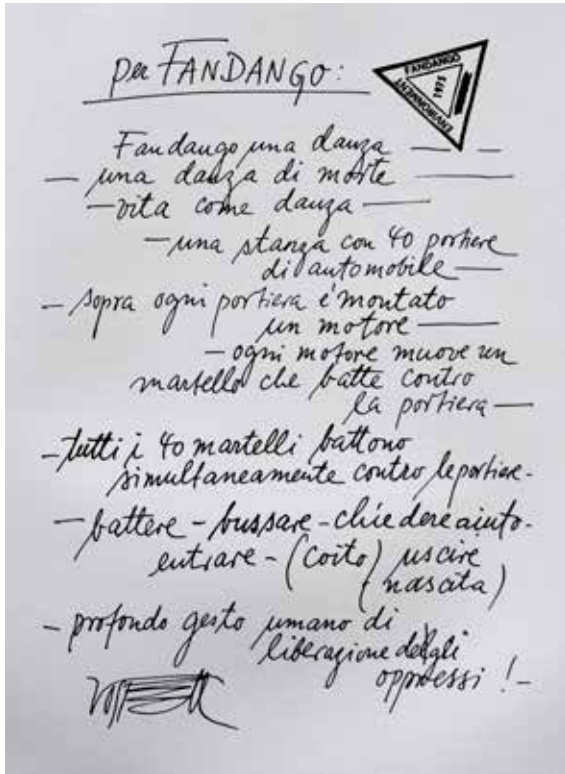 per FANDANGO:
FANDANGO
1975
ENVIRONMENT
Fandango una danza —— —
— una danza di morte ——
— vita come danza ——
— una stanza con 40 portiere
di automobile —
— sopra ogni portiera é montato
un motore ——
— ogni motore muove un
martello che batte contro
la portiera —
— tutti i 40 martelli battono
simultaneamente contro le portiere -
— battere - bussare - chiedere aiuto -
entrare - (coito) uscire
(nascita)
— profondo gesto umano di
liberazione degli
oppressi! -